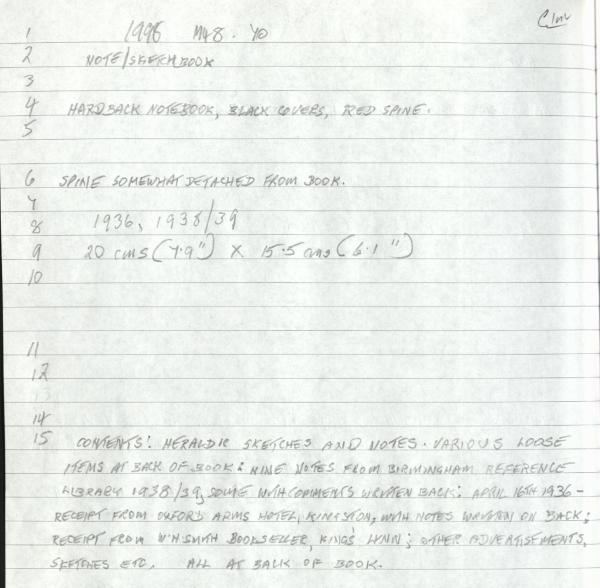 1 1998 M48. Yo
2 NOTE/SKETCHBOOK
3
4 HARDBACK NOTEBOOK, BLACK COVERS, RED SPINE.
5
6 SPINE SOMEWHAT DETACHED FROM BOOK.
7
8 1936, 1938/39
9 20 cms (7.9") X 15.5 cms (6.1")
10
11
12
14
15 CONTENTS: HERALDIC SKETCHES AND NOTES. VARIOUS LOOSE
ITEMS AT BACK OF BOOK: NINE NOTES FROM BIRMINGHAM REFERENCE
LIBRARY 1938/39, SOME WITH COMMENTS WRITTEN BACK; APRIL 16TH 1936 -
RECEIPT FROM OXFORD ARMS HOTEL, KINGSTON, WITH NOTES WRITTEN ON BACK;
RECEIPT FROM W.H SMITH BOOKSELLER, KINGS LYNN; OTHER ADVERTISEMENTS,
SKETCHES ETC. ALL AT BACK OF BOOK.